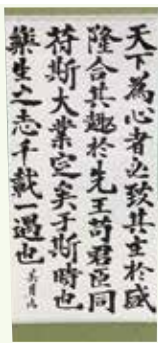 天下為心者必致其主於盛
隆合其趣於先王苟君臣同
符斯大業定矣于斯時也
樂生之志千載一遇也